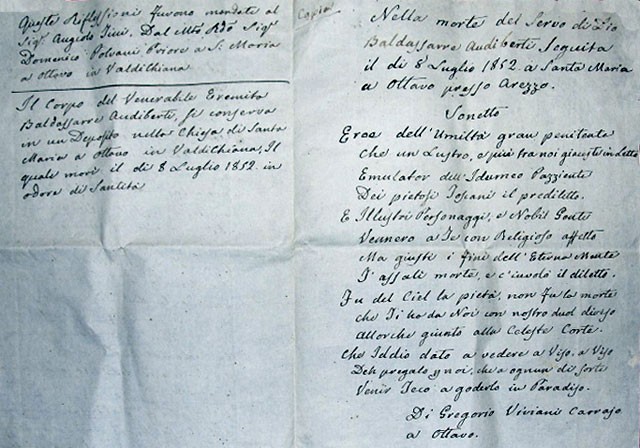 Queste Riflessioni furono mandate al
Sig.r Angiolo Dal Mto Rdo Sig.r
Domenico Polvani Priore a S. Maria
a Ottavo in Valdichiana
Il Corpo del Venerabile Eremita
Baldassarre Audiberti, si conserva
in un Deposito nella Chiesa di Santa
Maria a Ottavo in Valdichiana, Il
quale morì il di 8 Luglio 1852. in
odore di Santità
Copia
Nella morte del Servo di Dio
Baldassarre Audiberti Seguita
il di 8 Luglio 1852. a Santa Maria
a Ottavo presso Arezzo.
Sonetto
Eroe dell'Umiltà gran penitente
che un Lustro, e più tra noi
Emulator dell'Idumeo Pazziente
Dei pietosi Toscani il prediletto.
E Illustri Personaggi, e Nobil Gente
Vennero a Te con Religioso affetto
Ma giusti i fini dell'Eterna Mente
T'assalì morte, e c'involò il diletto.
Fu del Ciel la pietà, non fu la morte
che Ti ha da Noi con nostro duol diviso
Allorche giunto alla Celeste Corte.
Che Iddio dato a vedere a Viso, a Viso
Deh pregalo p noi, che a ognun di sorte
Venir Teco a goderlo in Paradiso.
Di Gregorio Viviani Carrajo
a Ottavo.